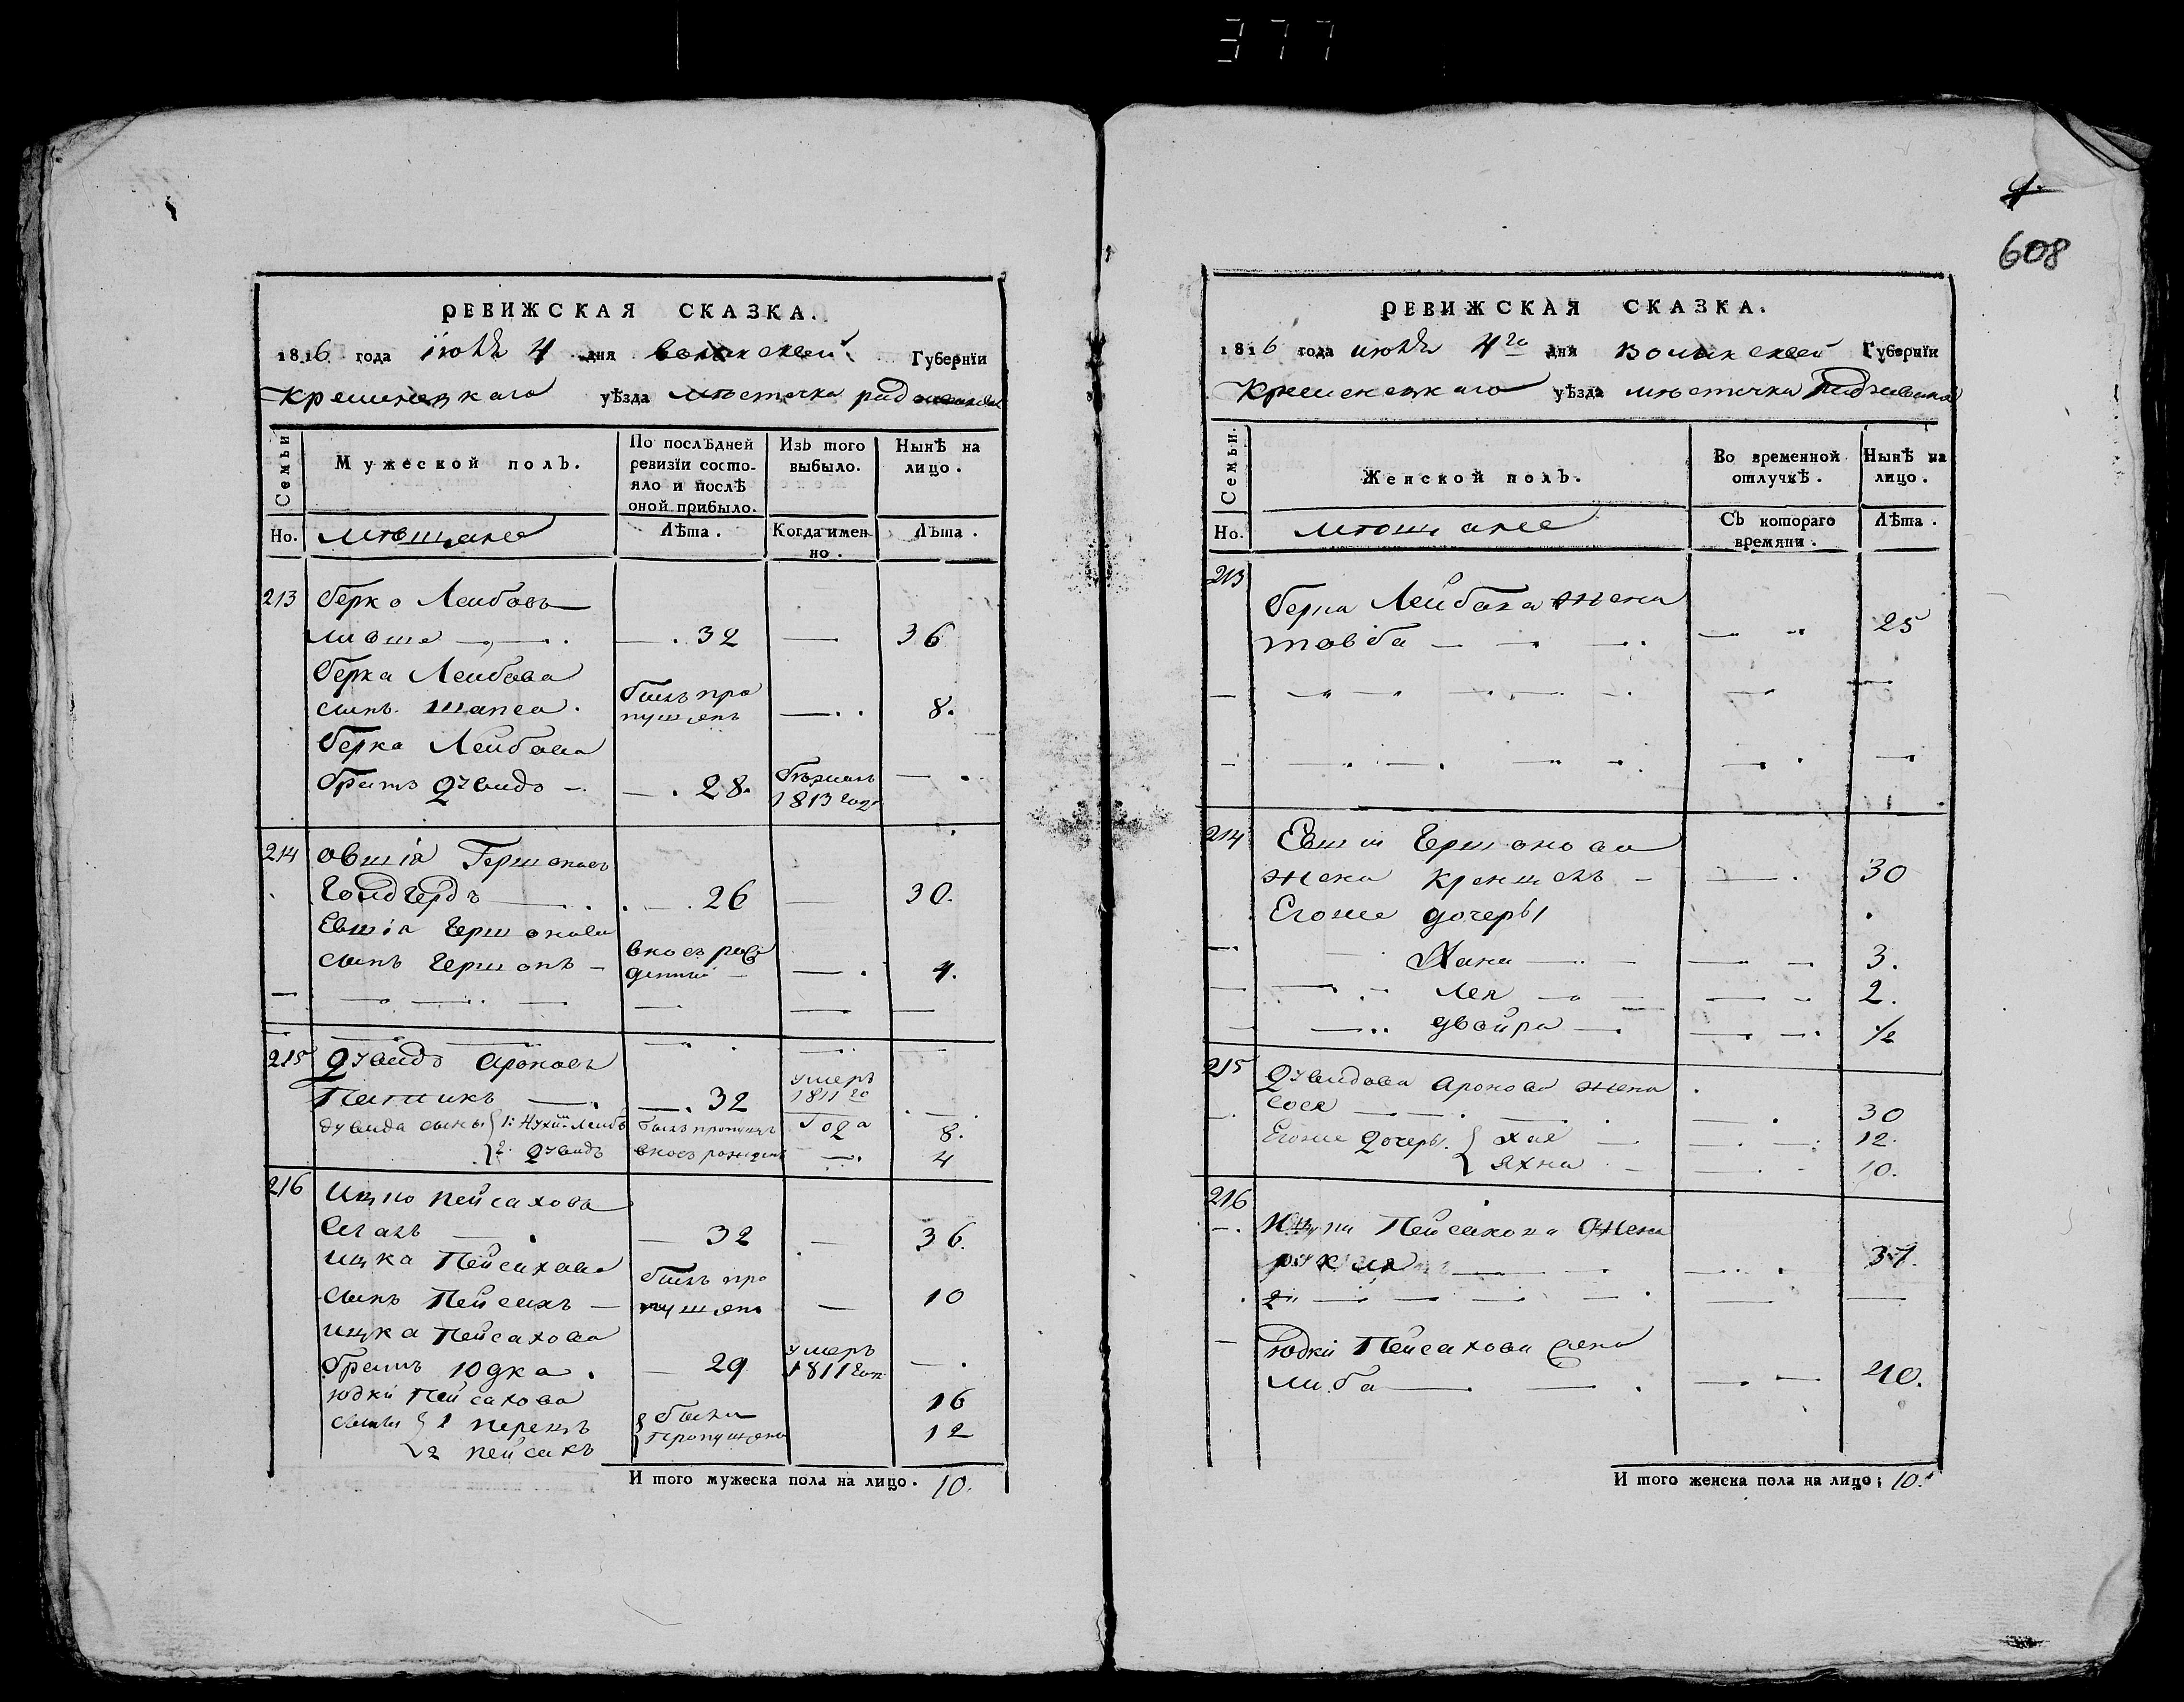 377
РЕВИЖСКАЯ СКАЗКА.
1816 года июля 4 дня волынской Губернїи
Кременецкаго уѣзда мѣстечка
Семьи
Мужеской полъ.
По послѣдней ревизїи состояло и послѣ оной прибыло.
Изъ того выбыло.
Нынѣ на лицо.
Но. мѣщане
Лѣта.
Когда именно.
Лѣта.
213 Берко Лейбовъ
— . 32 — 36
Берка Лейбова
сынъ шапса . былъ пропущенъ — . . 8.
Берка Лейбова
братъ Дувидъ — — . 28. бѣжалъ 1813 года — .
214 овшія Гершоновъ
Голдбердъ — . . . — . 26 — 30.
Евшія Гершонова
сынъ Гершонъ — вновъ рожденный — — . 4.
215 Дувидъ Ароновъ
— . — . 32 умеръ 1811го года . — .
дувида сыны 1: Лейбъ былъ пропущенъ 8.
2. Дувидъ вновъ рожденъ — . 4
216 Ицко Пейсаховъ
— . — 32 — 36.
ицка Пейсахова
сынъ Пейсахъ — былъ пропущенъ — 10
ицка Пейсахова
братъ Юдка . — 29 умеръ 1811 года — .
юдки Пейсахова 16
сыны 1 перецъ были пропущены 12
2 пейсахъ
И того мужеска пола на лицо. 10.
608
РЕВИЖСКАЯ СКАЗКА.
1816 года июля 4го дня Волынской Губернїи
Кременецкаго уѣзда мѣстечка Радзивилова
Семьи.
Женской полъ.
Во временной отлучкѣ.
Нынѣ на лицо.
Но. мѣщане
Съ котораго времяни.
Лѣта.
213
Берка Лейбова жена
тойба — — . — . — 25
214 Евшіи Гершонова
жена крейщелъ — — . 30
Егоже дочеры
Хана — . — — — 3.
Лея — — — — 2.
двойра — . — — . ½
215 Дувидова Аронова жена .
Сося — — . — . — . 30
Егоже дочеры. хая — — . — . 12.
яхна — — . - 10.
216
Ицки Пейсахова жена
рукля — . — . . 37.
юдки Пейсахова жена
либа — . — . — — 40.
И того женска пола на лицо; 10.